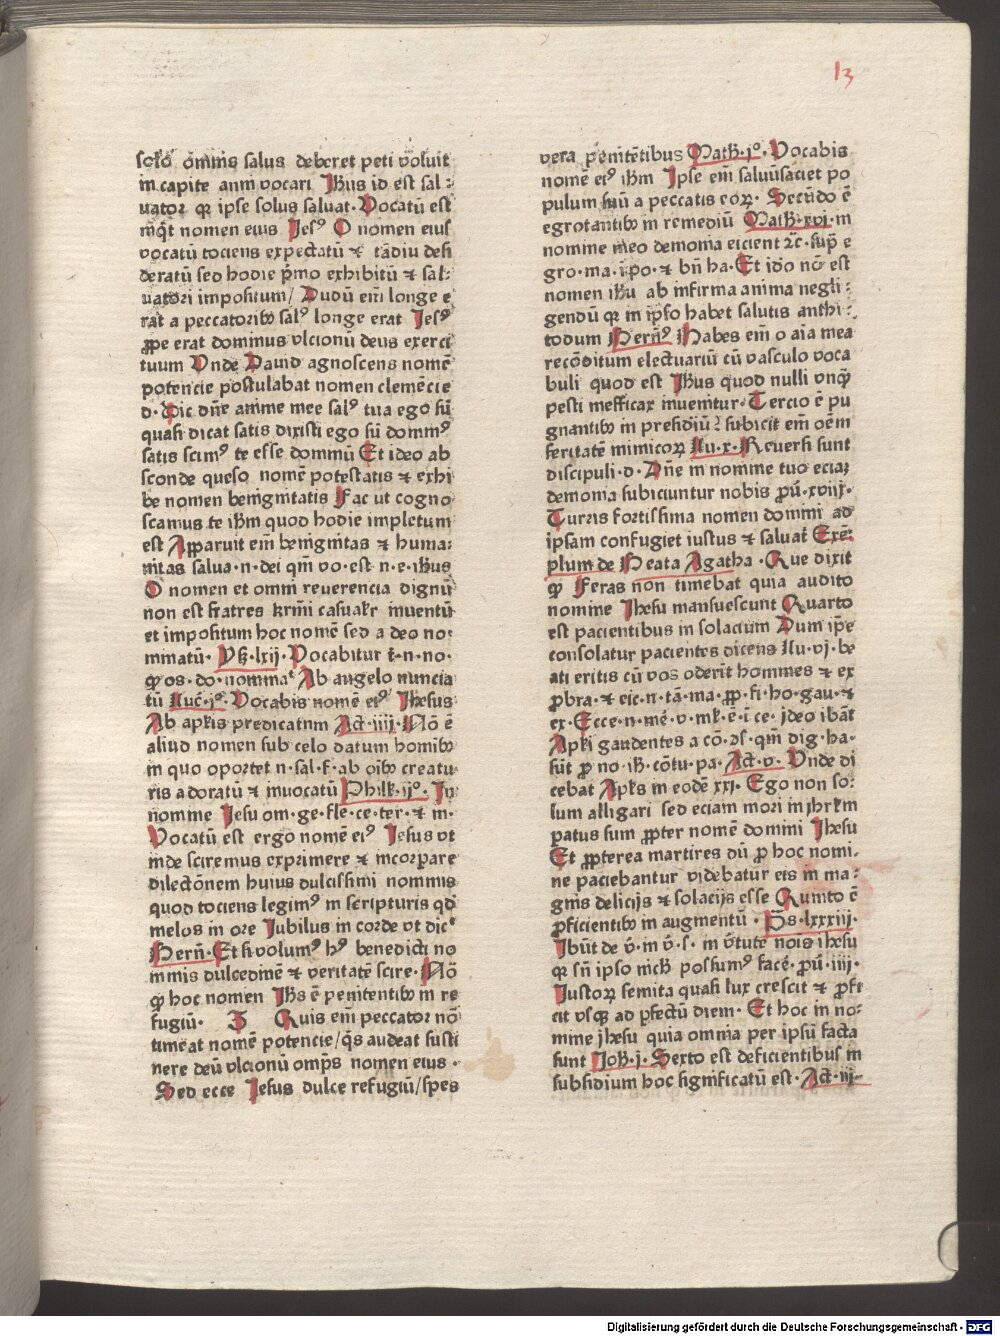 13
solo omnis salus deberet peti voluit
in capite anni vocari Ihſus id est sal⸗
uator qꝛ ipse solus saluat· Vocatū est
inqͣt nomen eius Jesꝰ O nomen eius
vocatū tociens expectatū ⁊ tādiu desi
deratū sed hodie pͥmo exhibitū ⁊ sal⸗
uatori impositum/ Dudū em̄ longe e
rat a peccatoribꝫ salꝰ longe erat Jesꝰ
ꝓpe erat dominus vlcionū deus exerci
tuum Vnde Dauid agnoscens nomē
potencie postulabat nomen clemēcie
d· Dic dn̄e anime mee salꝰ tua ego sū
quasi dicat satis dixisti ego sū dominꝰ
satis scimꝰ te esse dominū Et ideo ab
sconde queso nomē potestatis ⁊ exhi
be nomen benignitatis Fac ut cogno
scamus te ihm̄ quod hodie impletum
est Apparuit em̄ benignitas ⁊ huma⸗
nitas salua· n· dei qm̄ vo· est· n· e· ihūs
O nomen et omni reuerencia dignū
non est fratres krm̄i casualr̄ inuentū
et impositum hoc nomē sed a deo no⸗
minatū· Yſ· lxij· Vocabitur t̄· n· no·
qͦ os· do· nominaͭ Ab angelo nuncia
tū Luc̄· jͦ· Vocabis nomē eiꝰ Jhesus
Ab apl̄is predicatum Act̄· iiij· Nō ē
aliud nomen sub celo datum hominibꝫ
in quo oportet n· sal· f· ab oībꝫ creatu
ris adoratū ⁊ inuocatū Phil̄· ijͦ· In
nomine Jesu om· ge· fle· ce· ter· ⁊ in·
Vocatū est ergo nomē eiꝰ Jesus vt
inde sciremus exprimere ⁊ incorpare
dilectōnem huius dulcissimi nominis
quod tociens legimꝰ in scripturis qd̄
melos in ore Jubilus in corde vt dicͭ
Bern̄· Et si volumꝰ hꝰ benedicti no
minis dulcedinē ⁊ veritatē scire· Nō
qͦ hoc nomen Ihs̄ ē penitentibꝫ in re
fugiū· Quis em̄ peccator nō
timeat nomē potencie/ qͥs audeat susti
nere deū vlcionū omp̄s nomen eius·
Sed ecce Jesus dulce refugiū/ spes
vera penitētibus Math̄· jͦ· Vocabis
nomē eiꝰ ihm̄ Ipse em̄ saluū faciet po
pulum suū a peccatis eoꝝ· Secūdo ē
egrotantibꝫ in remediū Math̄· xvi· in
nomine meo demonia eicient ⁊c· sup̄ e
gro· ma· īpo· ⁊ bn̄ ha· Et ido nō est
nomen ihū ab infirma anima negli⸗
gendū qꝛ in ipso habet salutis anthi⸗
todum Bernꝰ Habes em̄ o aīa mea
recōditum electuariū cū vasculo voca
buli quod est Ihūs quod nulli vnqͣ
pesti inefficax inuenitur· Tercio ē pu
gnantibꝫ in presidiū? subicit em̄ oēm
feritatē inimicoꝝ Lu· x· Reuersi sunt
discipuli· d· Dn̄e in nomine tuo eciaꝫ
demonia subiciuntur nobis ꝓū· xviij·
Turris fortissima nomen domini ad
ipsam confugiet iustus ⁊ saluat̄ Exē⸗
plum de Beata Agatha· Que dixit
qͦ Feras non timebat quia audito
nomine Jhesu mansuescunt Quarto
est pacientibus in solacium Dum ip̄e
consolatur pacientes dicens Lu· vj· be
ati eritis cū vos oderīt homines ⁊ ex
ꝓbra· ⁊ eic· n· tā· ma· ꝓp· fi· ho· gau· ⁊
ex· Ecce· n· mē· v· ml̄· ē· ī ce· jdeo ibāt
Apl̄i gaudentes a cō· ꝯs· qm̄ dig· ha·
sūt ꝓ no· ih̄· cōtu· pa· Act̄· v· Vnde di
cebat Apl̄s in eodē xxj· Ego non so⸗
lum alligari sed eciam mori in jhrl̄m
ꝑatus sum ꝓpter nomē domini Jhesu
Et ꝓpterea martires dū ꝓ hoc nomi⸗
ne paciebantur videbatur eis in ma⸗
gnis delicijs ⁊ solacijs esse Quinto ē
ꝓficientibꝫ in augmentū· Ps̄· lxxxiij·
Ibūt de v̄· in v̄· s· in v̄tute nois ihesu
qꝛ sn̄ ipso nich̄ possumꝰ facē· ꝓū· iiij·
Iustoꝝ semita quasi lux crescit ⁊ ꝓfi
cit vsqꝫ ad ꝑfectū diem· Et hoc in no⸗
mine jhesu quia omnia per ipsū facta
sunt Joh̄· j· Serto est deficientibus in
subsidium hoc significatū est· Act̄· iij·
Digitalisierung gefördert durch die Deutsche Forschungsgemeinschaft - DFG